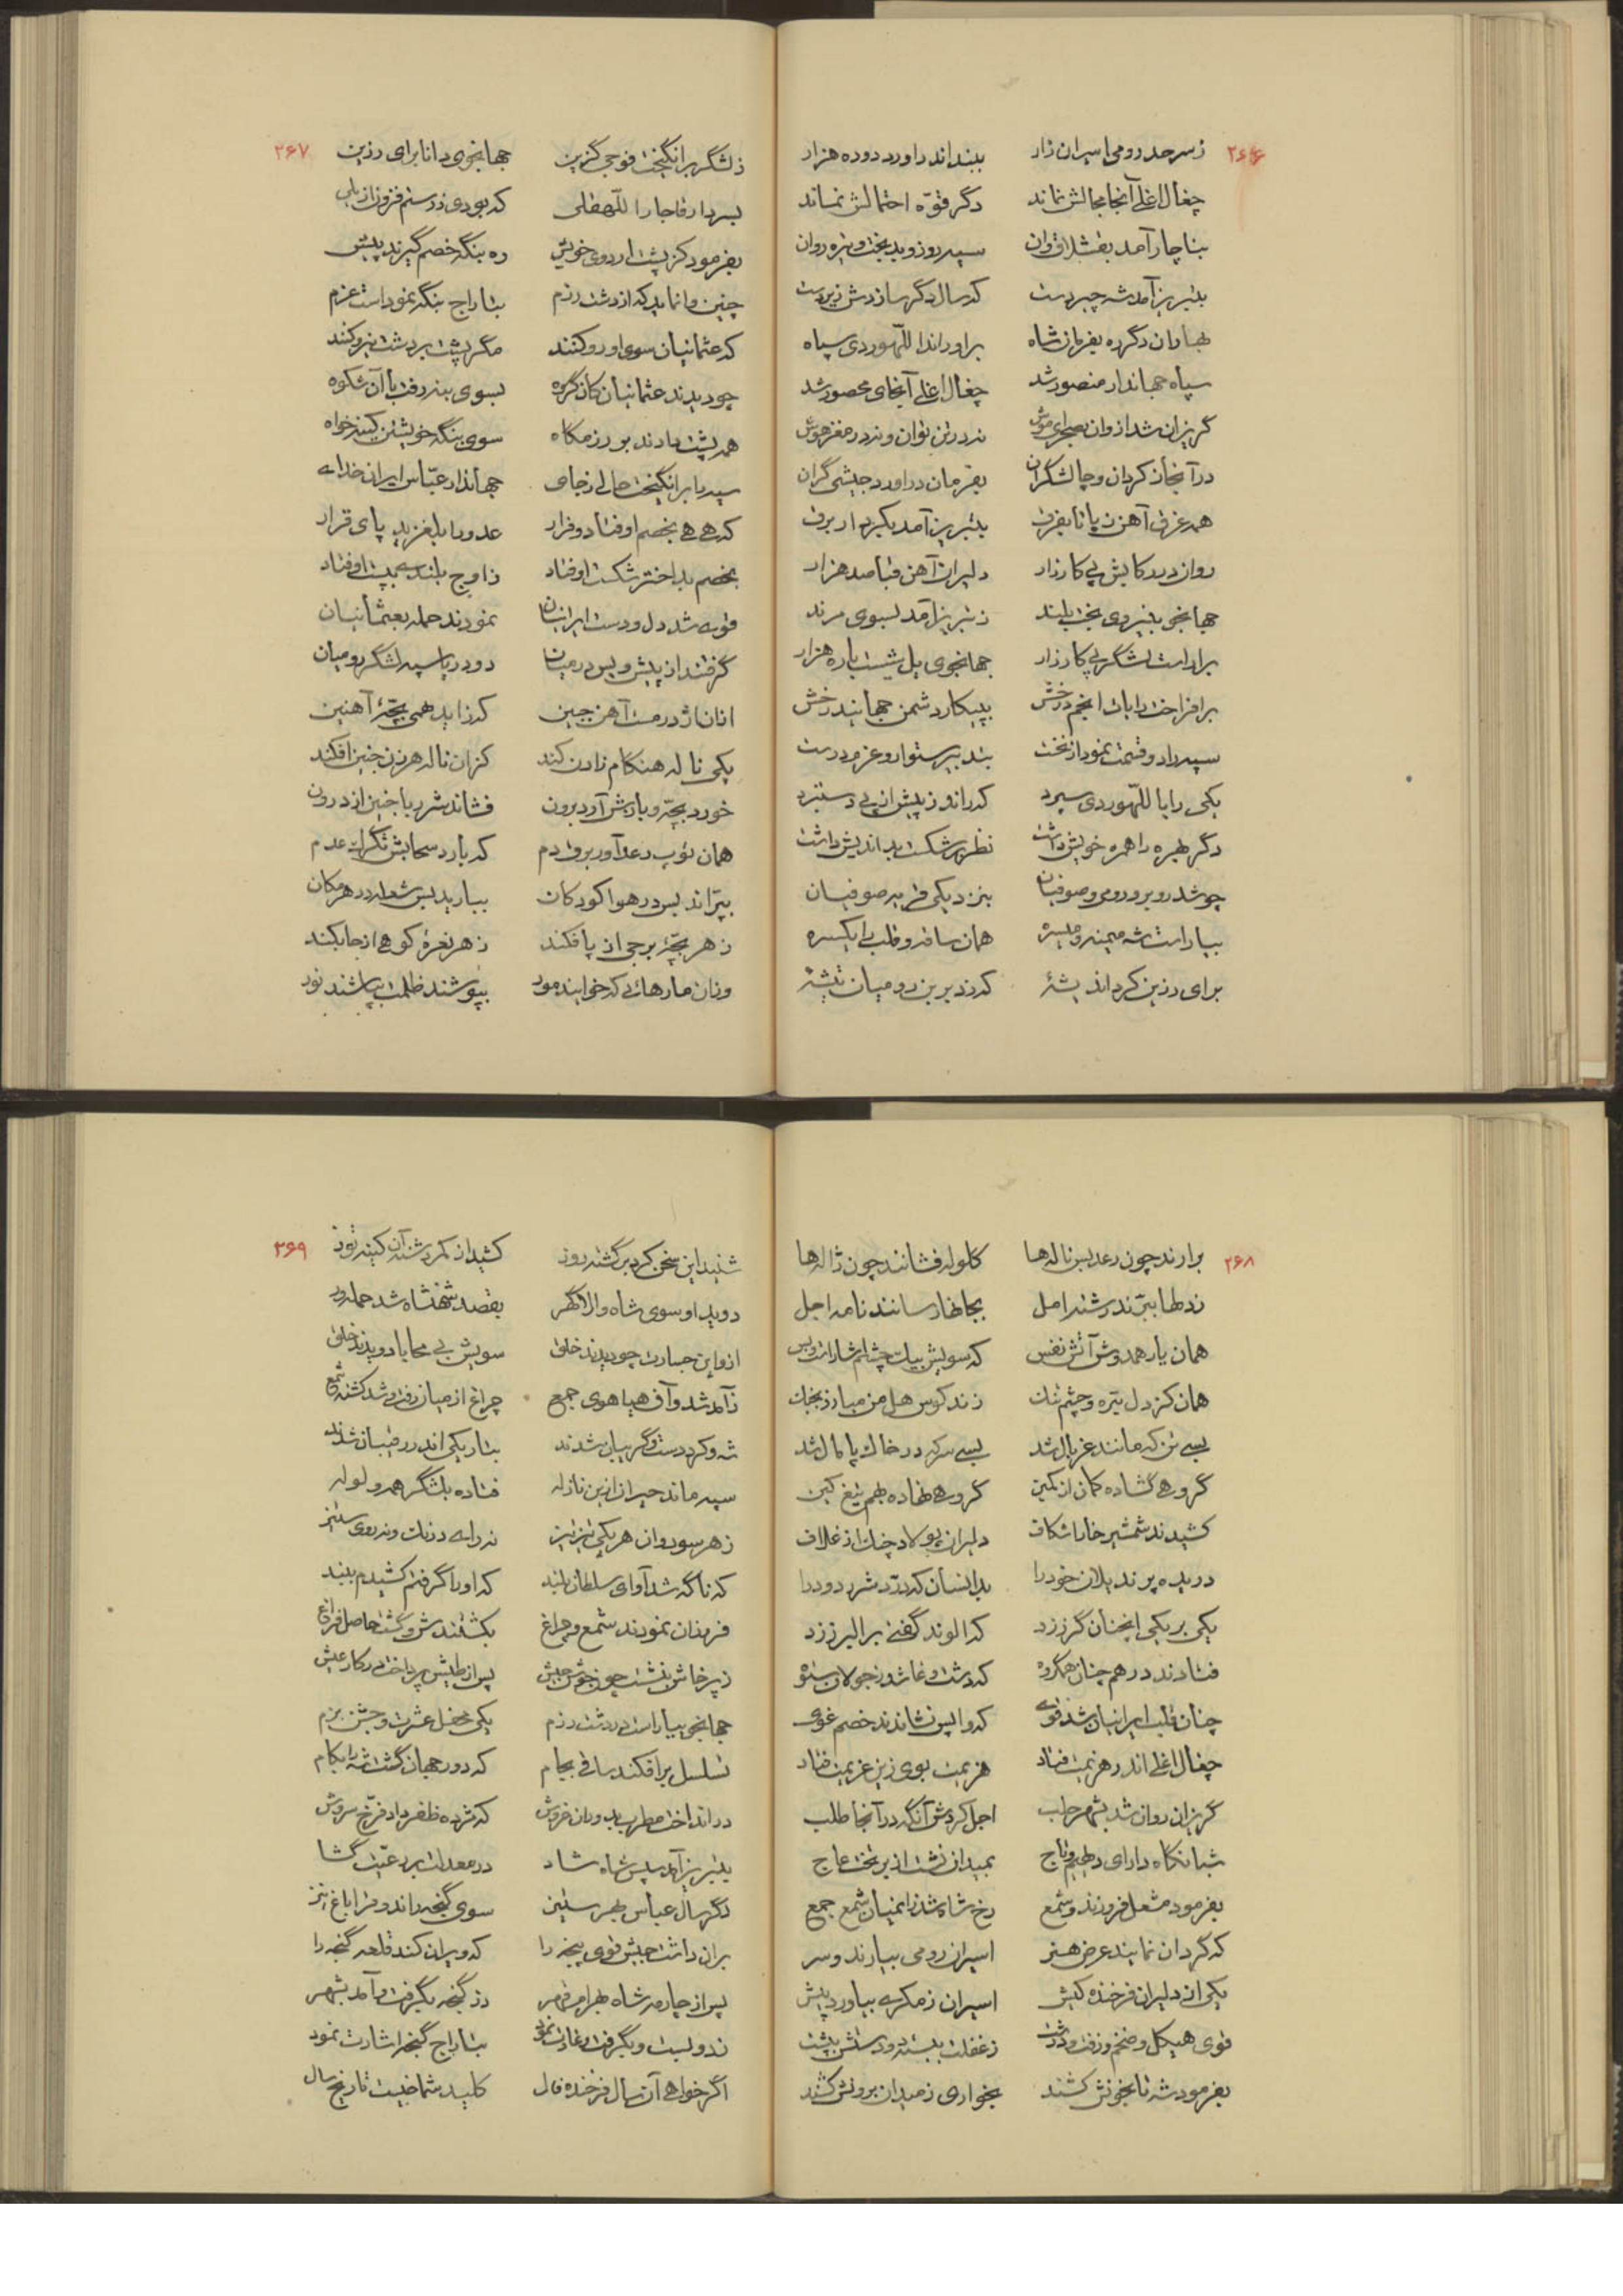 ۲۶۶
ز سرحد رومی اسیران زار ببند اندر اورد دوده هزار
چغال اغلی آنجا مجالش نماند دگر قوّه احتمالش نماند
بناچار آمد بقشلاق وان سیه روز و بدبخت و تیره روان
بتبریز آمد شه چیردست که سال دگر سازدش زیردست
بهاران دگر ره بفرمان شاه براوراند اللّهوردی سپاه
سپاه جهاندار منصور شد چغال اغلی آنجای محصور شد
گریزان شد از وان بصحرای موش نه در تن توان و نه در مغز هوش
در آنجا ز کردان و چالشگران بفرمان دراورد جیشی گران
همه غرق آهن ز پا تا بفرق بتبریز آمد بکردار برق
روان در رکابش پی کارزار دلیران آهن قبا صد هزار
جهانجو بنیروی بخت بلند ز تبریز آمد بسوی مرند
براراست لشگر پی کارزار جهانجوی یل شیست باره هزار
برافراخت رایات انجم درخش به پیکار دشمن جهانید رخش
سپه را دو قسمت نمود از نخست بتدبیر ستوار و عزم درست
یکی را باللّهوردی سپرد که راند ز پیش از پی دستبرد
دگر بهره را همره خویش داشت نظر بر شکست بداندیش داشت
چو شد روبرو رومی و صوفیان بنزدیکی قریه صوفیان
بیاراست شه میمنه و میسره همان ساقه و قلب را یکسره
برای رزین کرد اندیشهٔ که زد بر بن رومیان تیشهٔ
۲۶۷
ز لشگر برانگیخت فوجی گزین جهانجوی دانا برای رزین
بسردار قاجار اللّهقلی که بودی ز رستم فزون از یلی
بفرمود کز پشت اردوی خویش ره بنگه خصم گیرند پیش
چنین وانماید که از دشت رزم بتاراج بنگه نمود است عزم
که عثمانیان سوی او رو کنند مگر پشت بر دشت نیرو کنند
چو دیدند عثمانیان کان گروه بسوی بنه رفت با آن شکوه
همه پشت دادند بر رزمگاه سوی بنگه خویشتن کینه خواه
سپه را برانگیخت حالی ز جای جهاندار عبّاس ایران خدای
که هی هی بخصم اوفتاد و فرار عدو را بلغزید پای قرار
بخصم بداختر شکست اوفتاد ز اوج بلندی به پست اوفتاد
قوی شد دل و دست ایرانیان نمودند حمله بعثمانیان
گرفتند از پیش و پس در میان دو دریا سپه لشگر رومیان
از آن اژدر مست آهن جبین که زاید همی بچّهٔ آهنین
یکی ناله هنگام زادن کند کز آن ناله هر زن جنین افکند
خورد بچّه و بازش آرد برون فشاند شرر با جنین از درون
همان توپ رعدآور برق دم که بارد سحابش تگرگ عدم
بپّراند پس در هوا کودکان ببارید بس شعله در هر مکان
ز هر بچّه برجی از پا فکند ز هر نعرهٔ کوهی از جا بکند
وزان مارهائی که خوابند مور بپوشند ظلمت بپاشند نور
۲۶۸
برارند چون رعد بس ناله‌ها گلوله فشانند چون ژاله‌ها
ز دلها ببّرند رشته امل بجانها رسانند نامه اجل
همان یار همدوش آتش نفس که سویش بیک چشم اشارات و بس
همان کز دل تیره و چشم تنگ زند کوس هل من مبارز بجنگ
بسی تن که مانند غربال شد بسی سر که در خاک پامال شد
گروهی گشاده کمان از کمین گروهی نهاده بهم تیغ کین
کشیدند شمشیر خارا شکاف دلیران پولاد چنگ از غلاف
دریده پرند یلان خود را بدانسان که درّد شرر دود را
یکی بر یکی انچنان گرز زد که الوند گفتی بر البرز زد
فتادند در هم چنان همگروه که دشت وغا شد ز جولان ستوه
چنان قلب ایرانیان شد قوی که واپس نشاندند خصم غوی
چغال اغلی اندر هزیمت فتاد هزیمت بوی زین عزیمت فتاد
گریزان روان شد بشهر حلب اجل کردش آنگه در آنجا طلب
شبانگاه دارای دیهیم و تاج بمیدان نشست از بر تخت عاج
بفرمود مشعل فروزند و شمع رخ شاه شد زانمیان شمع جمع
که گردان نمایند عرض هنر اسیران رومی بیارند و سر
یکی از دلیران فرخنده کیش اسیران ز مکری بیاورد پیش
قوی هیکل و ضخم و زفت و درشت ز غفلت ببسته دو دستش بپشت
بفرمود شه تا بخونش کشند بخواری ز میدان برونش کشند
۲۶۹
شنید این سخن کرد برگشته روز کشید از کمر دشنه آن کینه توز
دوید او سوی شاه والاگهر بقصد شهنشاه شد حمله ور
ازو این جسارت چو دیدند خلق سویش بی محابا دویدند خلق
ز آمد شد و آن هیاهوی جمع چراغ از میان رفت و شد کشته شمع
شه و کرد دست و گریبان شدند بتاریکی اندر رقیبان شدند
سپه ماند حیران ازین نازله فتاده بلشگر همه ولوله
ز هر سو روان هر یکی تیز تیز نه رای درنگ و نه روی ستیز
که ناگه شد آوای سلطان بلند که او را گرفتم کشیدم ببند
فروزان نمودند شمع و چراغ بکشتندش و گشت حاصل فراغ
ز پرخاش بنشست چون جوش جیش پس از طیش پرداخت در کار عیش
جهانجو بیاراست در دشت رزم یکی محفل عشرت و جشن بزم
تسلسل برافکند ساقی بجام که دور جهان گشت شه را بکام
درانداخت مطرب بدوران خروش که مژده ظفر داد فرّخ سروش
بتبریز آمد سپس شاه شاد در معدلت بر رعیّت گشا
دگر سال عباس بهر ستیز سوی گنجه راند و قراباغ نیز
بران داشت جیش قوی پنجه را که ویران کند قلعه گنجه را
پس از چار مه شاه بهرام قهر دز گنجه بگرفت و آمد بشهر
ز دو بیست و بگرفت و غارت نمود بتاراج گنجه اشارت نمود
اگر خواهی آن سال فرخنده فال کلید شماخیست تاریخ سال